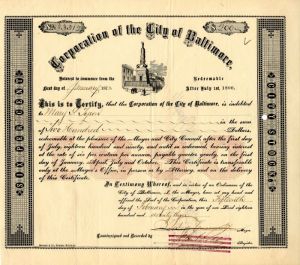 Corporation of the City of Baltimore,
Interest to commence from the
first day of January 187
Redeemable
After July 1st, 1890.
This is to Certify, that the Corporation of the City of Baltimore, is indebted
to Mary
in the sum
of Hundred
Dollars,
redeemable at the pleasure of the Mayor and City Council after the first day
of July, eighteen hundred and ninety, and until so redeemed, bearing interest
at the rate of six per centum per annum, payable quarter yearly, on the first
day of January, April July and October. This Certificate is transferable
only at the Mayor's Office, in person or by Attorney, and on the delivery
of this Certificate.
In Testimony Whereof, and in virtue of an Ordinance of the
City of Baltimore, I, the Mayor, have set my hand and
affixed the Seal of the Corporation, this Fifteenth
day of February in the year of our Lord eighteen
hundred and seventy
Mayor
Countersigned and Recorded by
Register